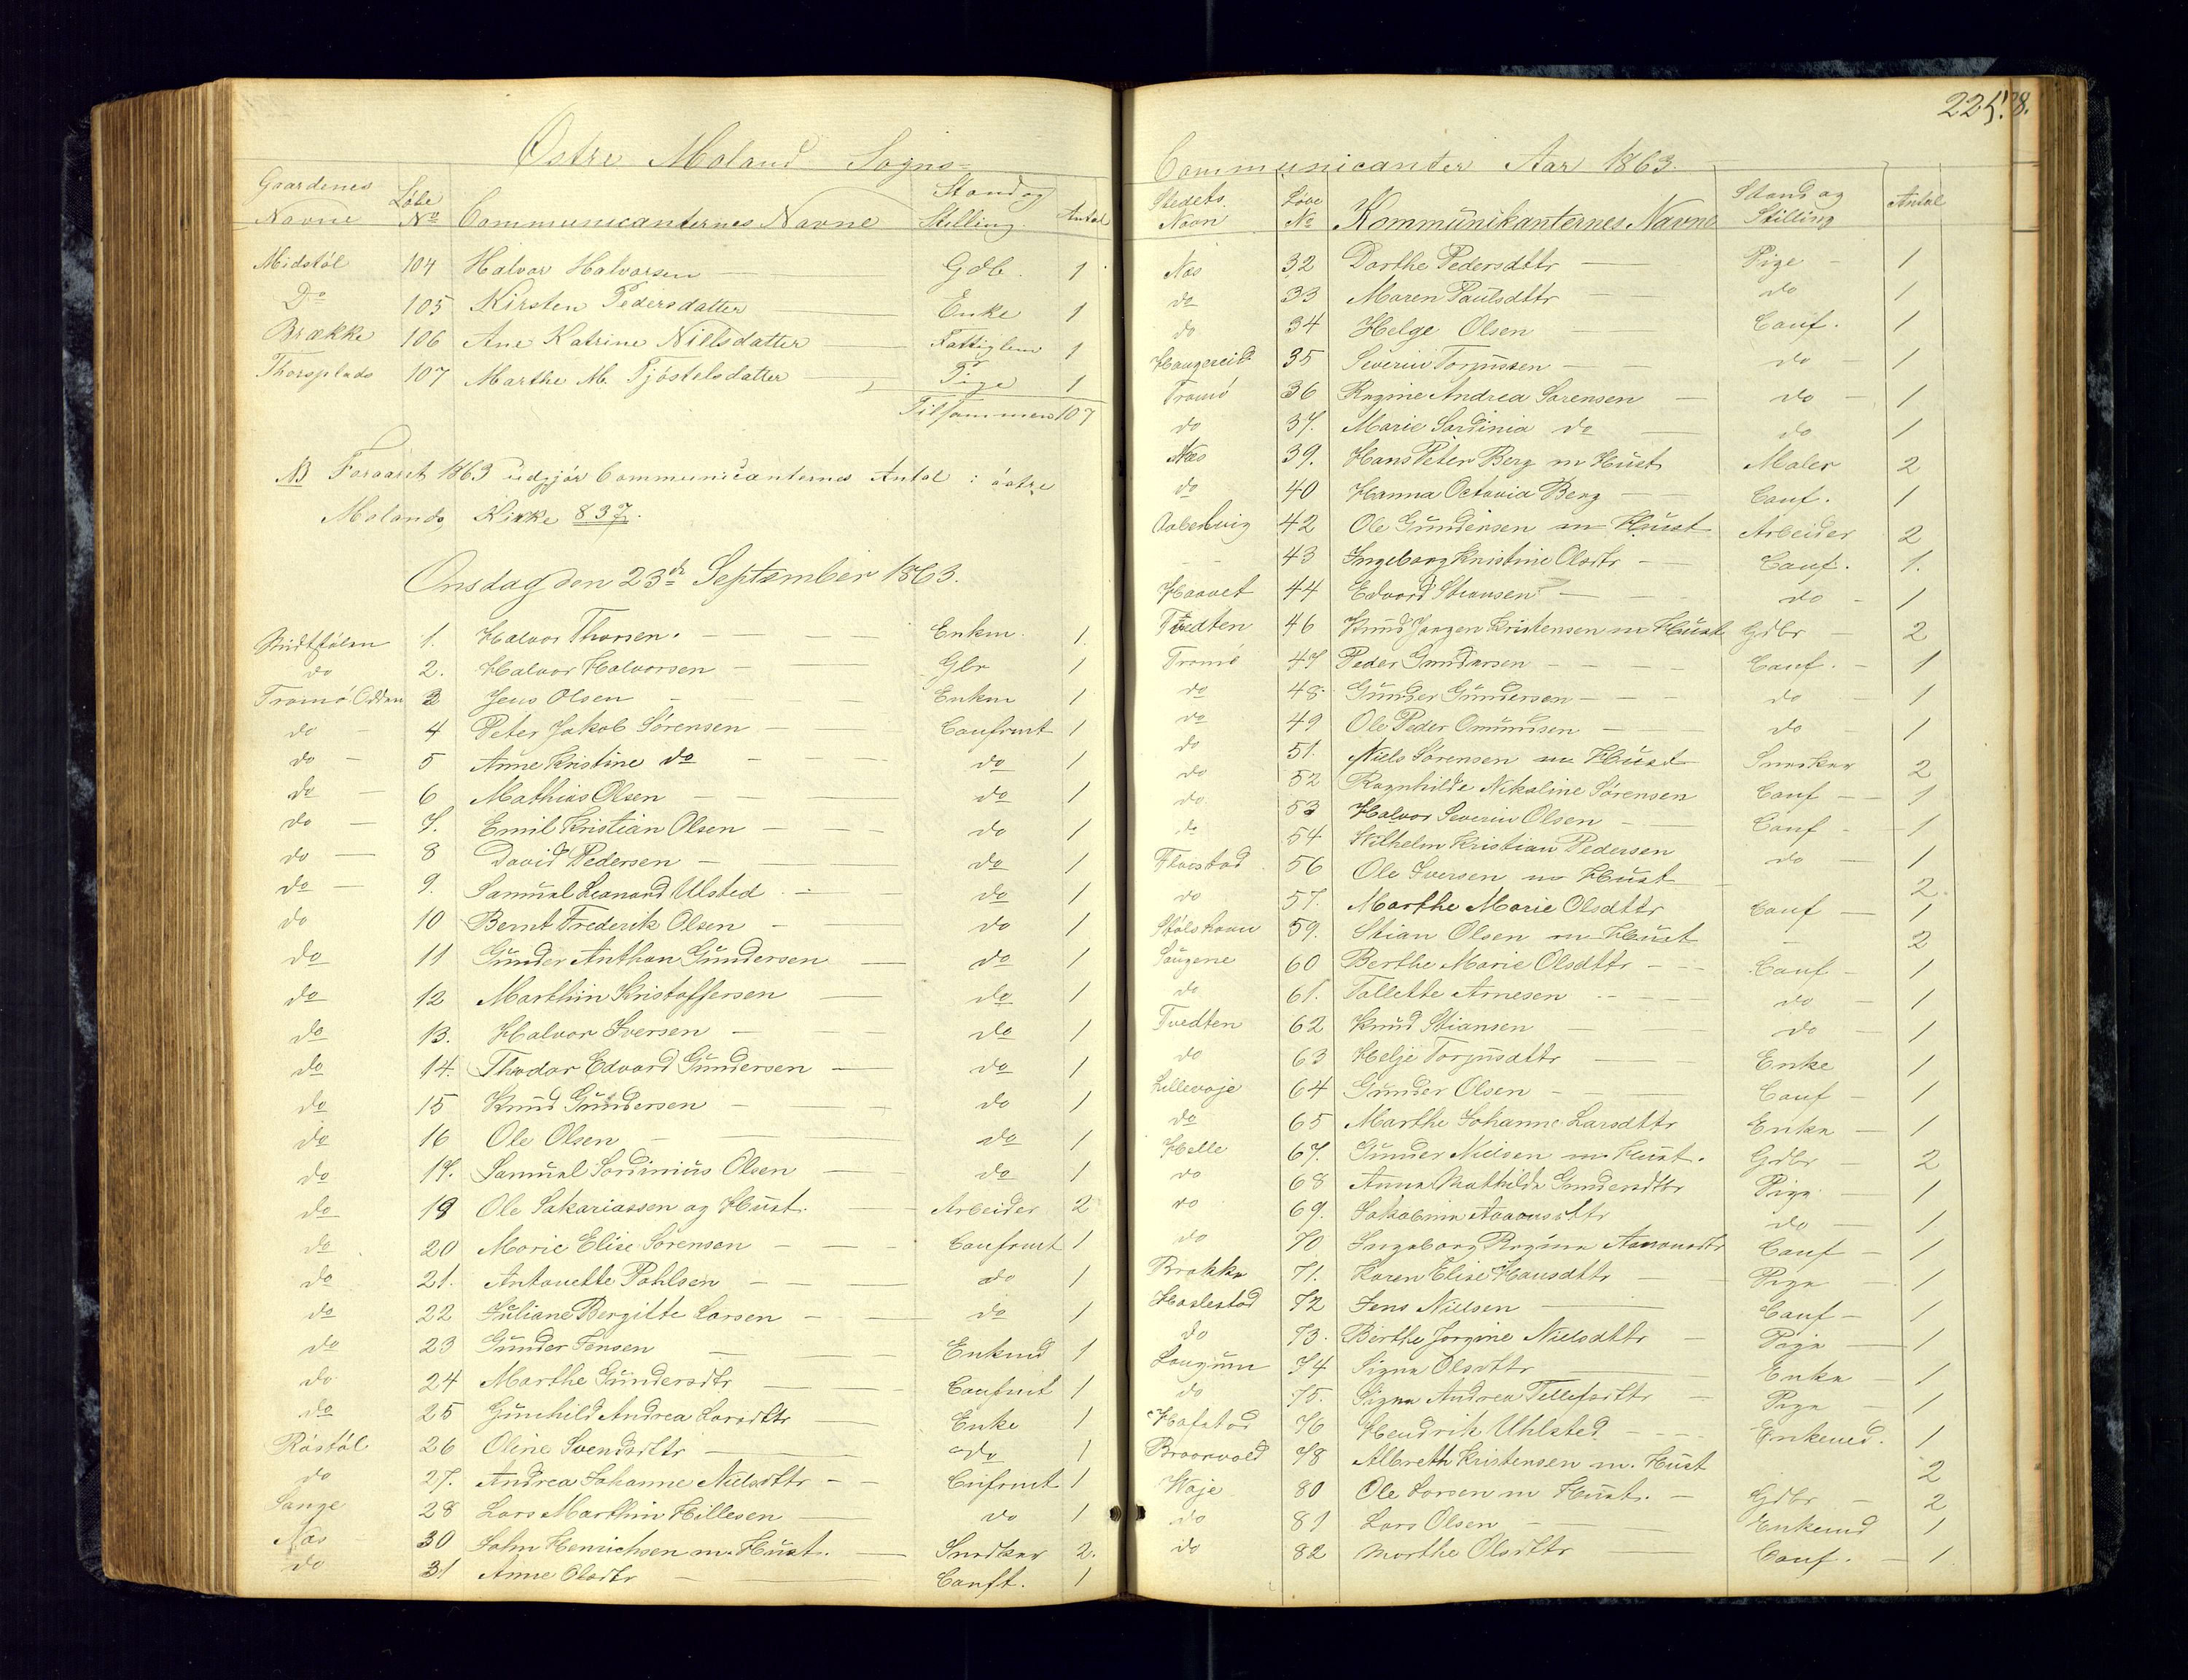 Østre Moland Sogns
Gaardenes Navne Løbe No Communicanternes Navne Stand og Stilling Antal
Midstøl 104 Halvor Halvorsen Gdb. 1
Do 105 Kirsten Pedersdatter Enke 1
Brække 106 Ane Katrine Nielsdatter Fattiglem 1
Thorsplads 107 Marthe M. Tjøstelsdatter Pige 1
Tilsammen 107
NB Foraaret 1863 udgjør Communicanternes Antal i østre
Molands Kirke 837.
Onsdag den 23de September 1863.
Midtstølen 1. Halvor Thorsen. Enkm. 1
do 2. Halvor Halvorsen Gbr 1
Tromø Odden 3 Jens Olsen Enkm 1
do 4 Peter Jakob Sørensen Confrmt 1
do 5 Anne Kristine do do 1
do 6 Mathias Olsen do 1
do 7. Emil Kristian Olsen do 1
do 8 David Pedersen do 1
do 9. Samuel Leonard Ulsted do 1
do 10 Bernt Frederik Olsen do 1
do 11 Gunder Anthon Gundersen do 1
do 12 Marthin Kristoffersen do 1
do 13. Halvor Iversen do 1
do 14. Thodor Edvard Gundersen do 1
do 15 Knud Gundersen do 1
do 16 Ole Olsen do 1
do 17. Samuel Sardinius Olsen do 1
do 19 Ole Sakariassen og Hust. Arbeider 2
do 20 Marie Elise Sørensen Confrmt 1
do 21. Antonette Pahlsen do 1
do 22 Juliane Bergitte Larsen do 1
do 23 Gunder Jensen Enkmd 1
do 24 Marthe Gundersdtr Confrmt 1
do 25 Gunhild Andrea Larsdttr Enke 1
Røstøl 26 Oline Svendsdttr do 1
do 27. Andrea Johanne Nielsdttr Cnfrmt 1
Sange 28 Lars Marthin Hillesen do 1
Næs 30 John Henrichsen m. Hust. Snedker 2.
do 31 Anne Olsdtr Conft. 1
225. 8.
Communicanter Aar 1863.
Stedets Navn Løbe No Kommunikanternes Navne Stand og Stilling Antal
Næs 32 Dorthe Pedersdttr Pige 1
do 33 Maren Paulsdttr do 1
do 34 Helge Olsen Conf. 1
Haugereid 35 Severin Torjussen do 1
Tromø 36 Regine Andrea Sørensen do 1
do 37. Marie Sardinia do do 1
Næs 39. Hans Peter Berg m Hust Maler 2
do 40 Hanna Octavia Berg Conf. 1
42 Ole Gundersen m Hust Arbeider 2
43 Ingeborg Kristine Olsdtr Conf. 1.
44 Edvard Stiansen do 1
Tvedten 46 Knud Jørgen Kristensen m Hust Gdbr 2
Tromø 47 Peder Gundersen Conf. 1
do 48. Gunder Gundersen do 1
do 49 Ole Peder Omundsen do 1
do 51. Niels Sørensen m Hust Snedker 2
do 52 Ragnhilde Nikoline Sørensen Conf 1
do 53 Halvor Severin Olsen Conf 1
do 54 Wilhelm Kristian Pedersen do 1
Flovstad 56 Ole Iversen m Hust 2.
do 57. Marthe Marie Olsdttr Conf 1
Stølshavn 59. Stian Olsen m Hust 2
Saugene 60 Berthe Marie Olsdttr Conf 1
do 61. Tallette Arnesen do 1
Tvedten 62 Knud Stiansen do 1
do 63 Helje Torjusdttr Enke 1
Lillevoje 64 Gunder Olsen Conf 1
do 65 Marthe Johanne Larsdttr Enke 1
Helle 67. Gunder Nielsen m. Hust. Gdbr 2
do 68 Anna Mathilde Gundersdttr Pige 1
do 69. Jakobine Aanonsdttr do 1
do 70 Ingeborg Regine Aanonsdtr Conf 1
Brække 71. Karen Elise Hansdttr Pige 1
Haslestad 72 Jens Nielsen Conf 1
do 73. Birthe Jorgine Nielsdttr Pige 1
Langum 74 Signe Olsdttr Enke 1
do 75. Signe Andrea Tellefsdttr Pige 1
Hafstad 76 Hendrik Uhlsted Enkemd. 1
Braarvold 78 Albreth Kristensen m. Hust 2
Woje 80 Ole Larsen m Hust. Gdbr 2
do 81 Lars Olsen Enkemd 1
do 82 Marthe Olsdttr Conf. 1